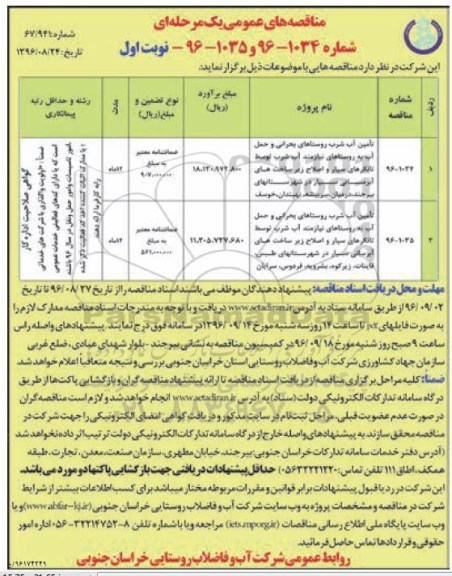 مناقصه های عمومی یک مرحله ای
شماره ۱۰۳۴-۹۶ و ۱۰۳۵-۹۶ - نوبت اول
شماره: ۶۷/۹۴۱
تاریخ: ۱۳۹۶/۰۸/۲۴
این شرکت در نظر دارد مناقصه هایی با موضوعات ذیل برگزار نماید:
ردیف
شماره مناقصه
نام پروژه
مبلغ برآورد (ریال)
نوع تضمین و مبلغ (ریال)
مدت
رشته و حداقل رتبه پیمانکاری
۱
۹۶-۱۰۳۴
تأمین آب شرب روستاهای بحرانی و حمل
آب به روستاهای نیازمند آب شرب توسط
تانکرهای سیار و اصلاح زیر ساخت های
آبرسانی سیار در شهرستانهای
بیرجند، سربیشه، نهبندان، خوسف
۱۸,۱۳۰,۹۷۲,۸۰۰
ضمانتنامه معتبر
به مبلغ
۹۰۷,۰۰۰,۰۰۰
۱۲ماه
۲
۹۶-۱۰۳۵
تأمین آب شرب روستاهای بحرانی و حمل
آب به روستاهای نیازمند آب شرب توسط
تانکرهای سیار و اصلاح زیر ساخت های
آبرسانی سیار در شهرستانهای طبس،
قاینات، زیرکوه، بشرویه، فردوس، سرایان
۱۱,۲۰۵,۷۲۷,۶۸۰
ضمانتنامه معتبر
به مبلغ
۵۶۱,۰۰۰,۰۰۰
۱۲ماه
مهلت و محل دریافت اسناد مناقصه: پیشنهاد دهندگان موظف می باشند اسناد مناقصه را از تاریخ ۹۶/۰۸/۲۷ تا تاریخ
۹۶/۰۹/۰۲ از طریق سامانه ستاد به آدرس www.setadiran.ir دریافت و با توجه به مندرجات اسناد مناقصه مدارک لازم را
به صورت فایلهای pdf تا ساعت ۱۴ روز سه شنبه مورخ ۱۳۹۶/۰۹/۱۴ در سامانه فوق درج نمایند. پیشنهادهای واصله راس
ساعت ۹ صبح روز شنبه مورخ ۹۶/۰۹/۱۸ در کمیسیون مناقصه به نشانی بیرجند - بلوار شهدای عبادی، ضلع غربی
سازمان جهاد کشاورزی شرکت آب و فاضلاب روستایی استان خراسان جنوبی بررسی و نتیجه متعاقباً اعلام خواهد شد.
ضمناً: کلیه مراحل برگزاری مناقصه از دریافت اسناد مناقصه تا ارائه پیشنهاد مناقصه گران و بازگشایی پاکتها از طریق
درگاه سامانه تدارکات الکترونیکی دولت (ستاد) به آدرس www.setadiran.ir انجام خواهد شد و لازم است مناقصه گران
در صورت عدم عضویت قبلی، مراحل ثبت نام در سایت مذکور و دریافت گواهی امضای الکترونیکی را جهت شرکت در
مناقصه محقق سازند. به پیشنهادهای واصله خارج از درگاه سامانه تدارکات الکترونیکی دولت ترتیب اثر داده نخواهد شد
(آدرس دفتر خدمات سامانه تدارکات خراسان جنوبی: بیرجند، خیابان مطهری، سازمان صنعت، معدن، تجارت، طبقه
همکف، اطاق ۱۱۱ تلفن تماس: ۰۵۶۳۲۲۲۱۲۲۰) حداقل پیشنهادات دریافتی جهت بازگشایی پاکتها دو مورد می باشد.
این شرکت در رد یا قبول پیشنهادات برابر قوانین و مقررات مربوطه مختار میباشد برای کسب اطلاعات بیشتر از شرایط
شرکت در مناقصه و مشخصات پروژه به وب سایت شرکت آب و فاضلاب روستایی خراسان جنوبی (www.abfar-kj.ir) و یا
وب سایت پایگاه ملی اطلاع رسانی مناقصات (iets.mporg.ir) مراجعه و یا با شماره تلفن ۸-۳۲۲۱۴۷۵۲-۰۵۶ اداره امور
حقوقی و قراردادها تماس حاصل فرمائید.
روابط عمومی شرکت آب و فاضلاب روستایی خراسان جنوبی